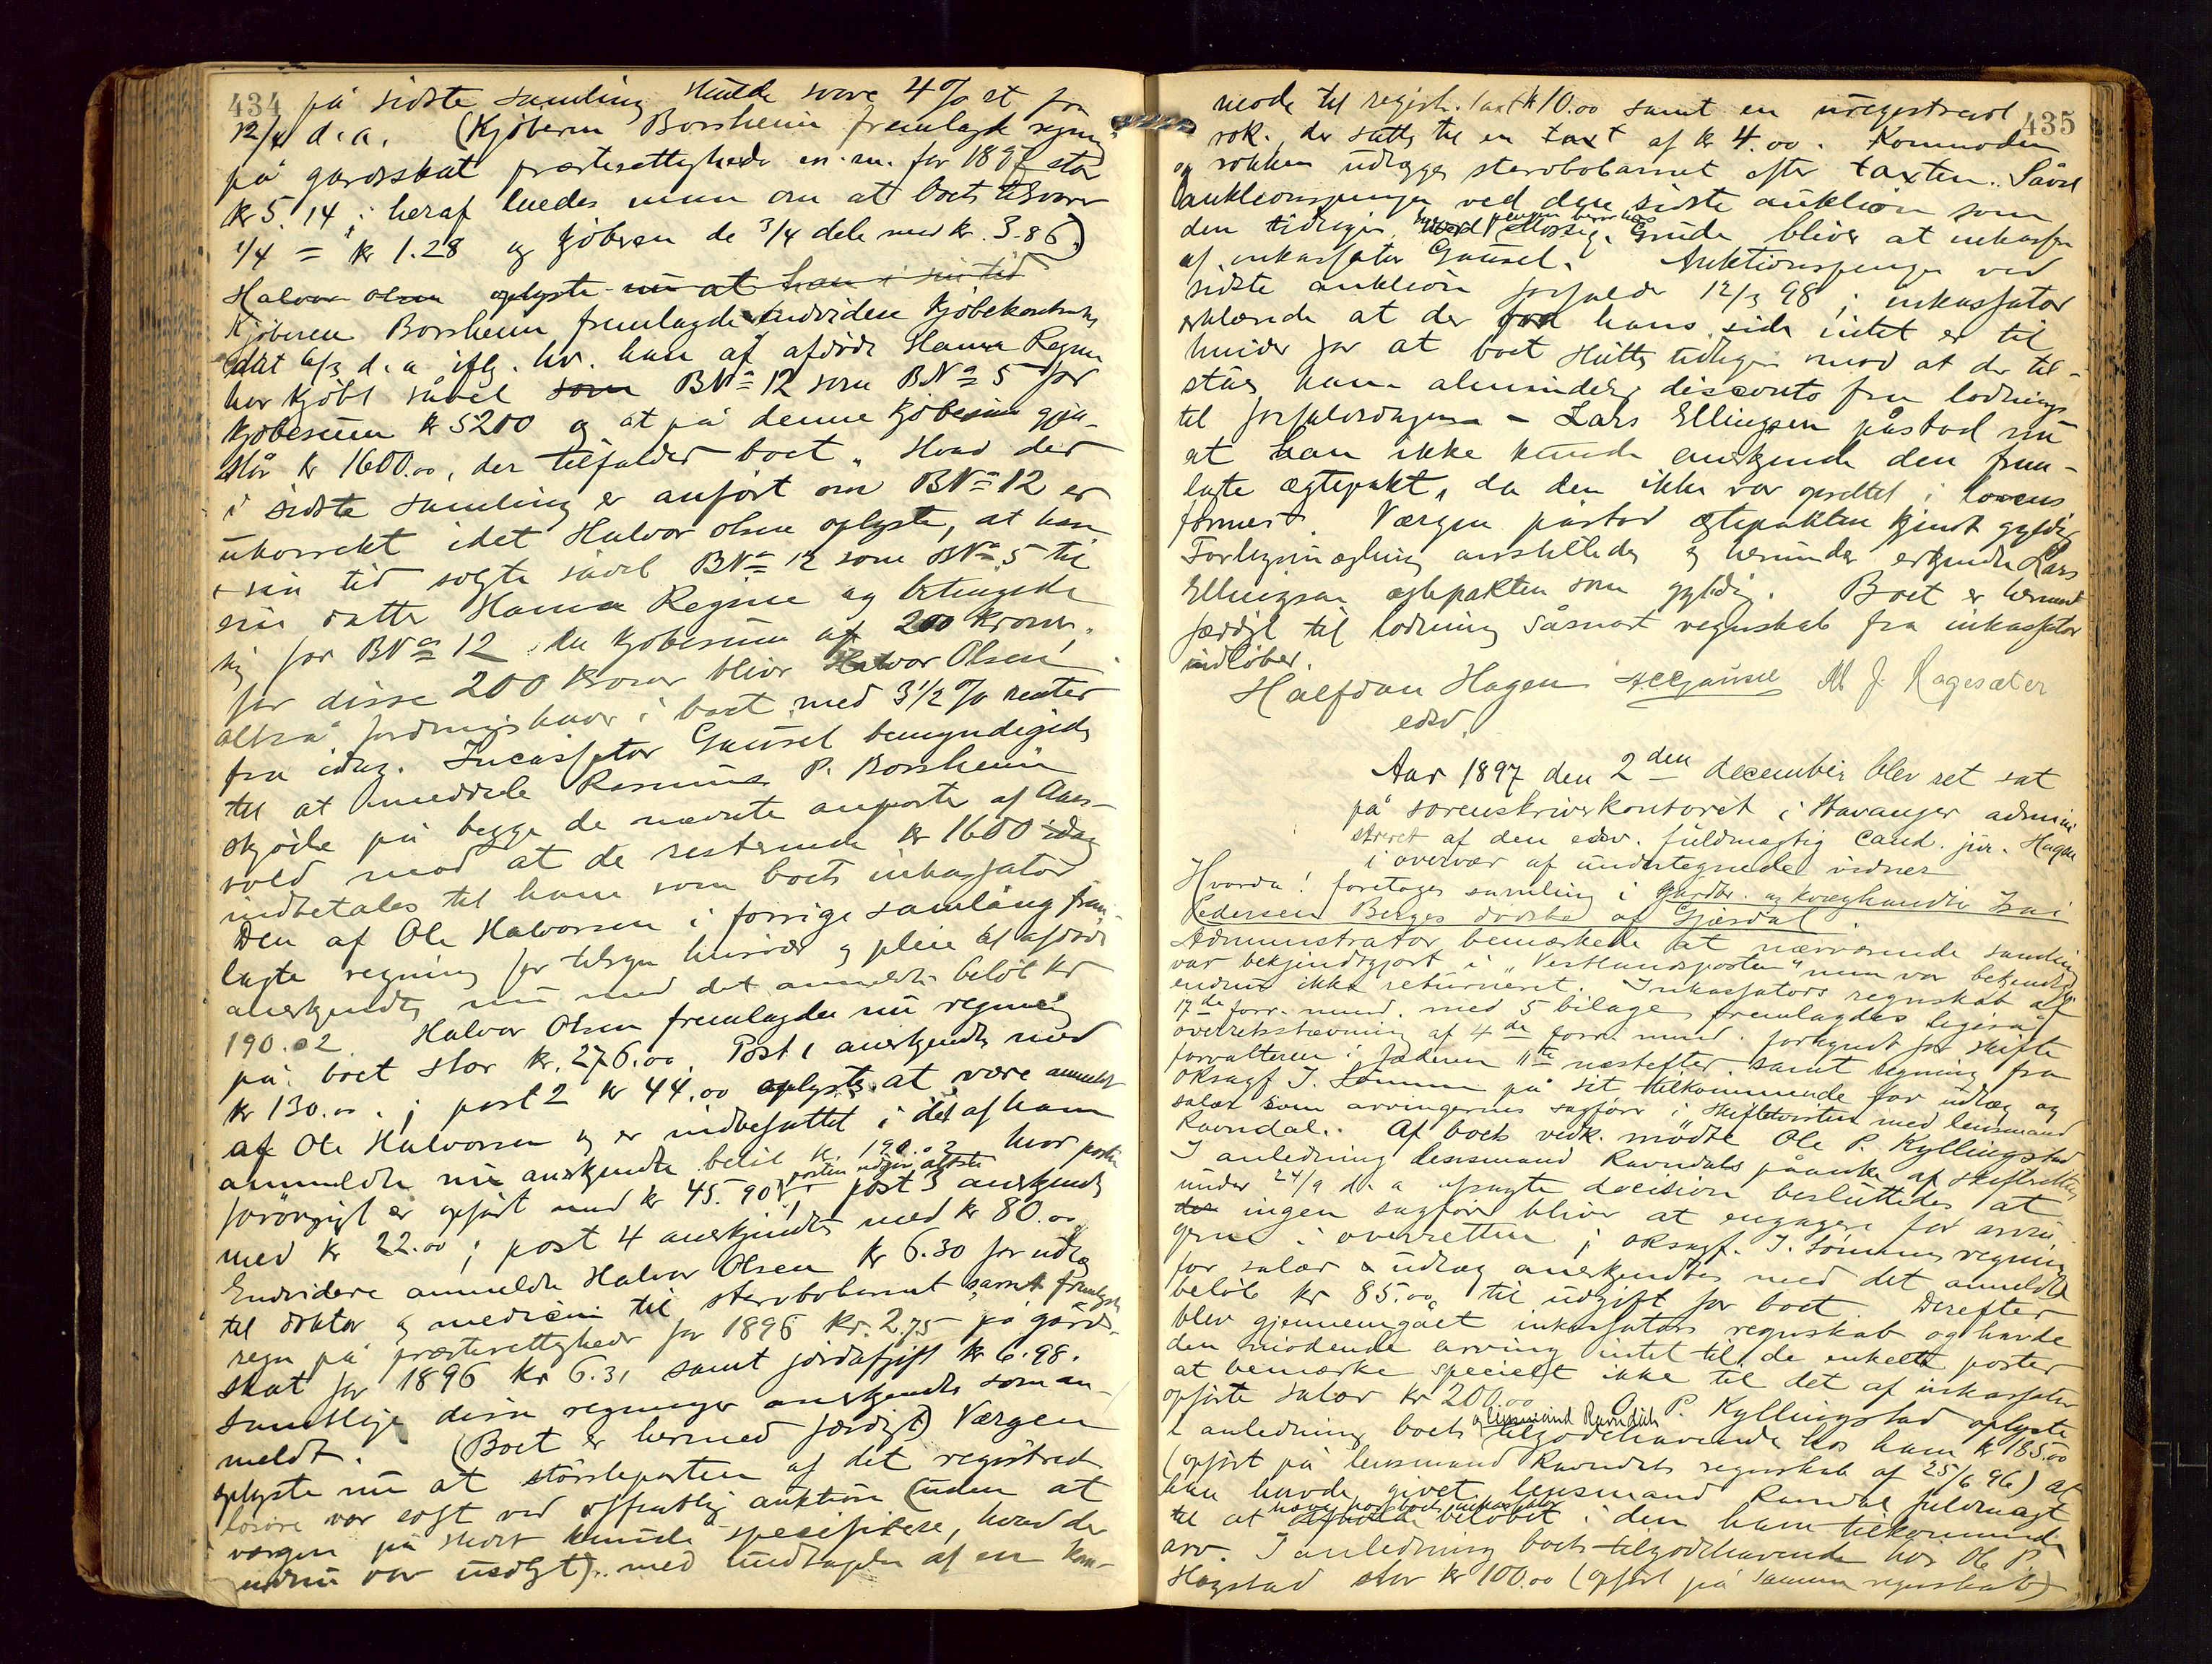 434
på sidste samling skulde svare 4% rt fra
12/4 d.a. (Kjøberen Borsheim fremlagde regning
på gårdsskat præsterettigheder m.m. for 1897 stor
kr 5.14; heraf enedes man om at boet tilsvarer
1/4 = kr 1.28 og kjøberen de 3/4 dele med kr. 3.86.)
Halvor Olsen oplyste nu at han i sin tid
Kjøberen Borsheim fremlagde endvidere kjøbekontrakt
dat 6/3 d.a. iflg. hv. han af afdøde Hanna Regine
har kjøbt såvel som BNo 12 som BNo 5 for
kjøbesum kr 5200 og at på denne kjøbesum gjen-
står kr 1600.00, der tilfalder boet. Hvad der
i sidste samling er anført om BNo 12 er
ukorrekt idet Halvor Olsen oplyste, at han
i sin tid solgte såvel BNo 12 som BNo 5 til
sin datter Hanna Regine og betingede
sig for BNo 12 en kjøbesum af 200 kroner.
for disse 200 kroner bliver Halvor Olsen
altså fordringshaver i boet med 3 1/2 % renter
fra idag. Incassator Gausel bemyndigedes
til at meddele Rasmus P. Borsheim
skjøde på begge de nævnte anparter af Aas-
vold mod at de resterende kr 1600 idag
indbetales til ham som boets inkassator
Den af Ole Halvorsen i forrige samling frem-
lagte regning for tilsyn husvær og pleie af afdøde
anerkjendtes nu med det anmeldte beløb kr
190.02. Halvor Olsen fremlagde nu regning
på boet stor kr. 276.00. Post 1 anerkjendtes med
kr 130.00.; post 2 kr 44.00 oplystes at være anmeldt
af Ole Halvorsen og er indbefattet i det af ham
anmeldte nu anerkjendte beløb kr. 190.02 hvor posten
forøvrigt er opført med kr 45.90; posten udgår altså post 3 anerkjendtes
med kr 22.00; post 4 anerkjendtes med kr 80.00
Endvidere anmeldte Halvor Olsen kr 6.30 for udlæg
til doktor og medicin til sterbobarnet samt fremlagde
regn på præsterettigheder for 1896 kr. 2.75 på gårds-
skat for 1896 kr 6.31 samt jordafgift kr 6.98.
samtlige disse regninger anerkjendtes som an-
meldt. (Boet er hermed færdigt) Værgen
oplyste nu at størsteparten af det registrerede
løsøre var solgt ved offentlig auktion (uden at
værgen på stedet kunde specificere, hvad der
endnu var usolgt).. med undtagelse af en kom-
435
mode til regist. taxt kr 10.00 samt en uregistreret
rok. der sattes til en taxt af kr 4.00. Kommoden
og rokken udlægges sterbobarnet efter taxten. Såvel
auktionspenger ved den sidste auktion som
den tidligere, hvoraf pengene beror hos Grude bliver at inkassere
af inkassator Gausel. Auktionspenger ved
sidste auktion forfalder 12/3 98; inkassator
erklærede at der fra hans side intet er til
hinder for at boet sluttes tidligere mod at der til-
ståes ham almindelig disconto fra lodnings-
til forfaldsdagen – Lars Ellingsen påstod nu
at han ikke kunde anerkjende den frem-
lagte ægtepakt, da den ikke var oprettet i lovens
former. Værgen påstod ægtepakten kjendt gyldig
Forligsmægling anstilledes og herunder erkjendte Lars
Ellingsen ægtepakten som gyldig. Boet er hermed
færdigt til lodning såsnart regnskab fra inkassator
indløber.
Halfdan Hagen HCGausel M J. Hagesæter
edsv.
Aar 1897 den 2den december blev ret sat
på sorenskriverkontoret i Stavanger admini
streret af den edsv. fuldmægtig cand. jur. Hagen
i overvær af undertegnede vidner
Hvorda! foretoges samling i gardbr. og kræghandler Trui
Pedersen Berges dødsbo af Gjesdal
Administrator bemærkede at nærværende samling
var bekjendtgjort i "Vestlandsposten" num var bekjendtg.
endnu ikke returneret. Inkassators regnskab af
17de forr. mnd. med 5 bilage fremlagdes ligeså
overretsstævning af 4de forr. mnd. forkyndt for skifte
forvalteren i Jæderen 11te næstefter. samt regning fra
oksagf. I. Sømme på sit tilkommende for udlæg og
salær som arvingernes sagfører i skiftetvisten med lensmand
Ravndal. Af boets vedk. mødte Ole P. Kyllingstad
I anledning lensmand Ravndals påanke af skifterettens
under 24/9 d.a afsagte decision besluttedes at
der ingen sagfører bliver at engagere for arvin
gerne i overretten; oksagf. I. Sømmes regning
for salær & udlæg anerkjendtes med det anmeldte
beløb kr 85.00 til udgift for boet. Derefter
blev gjennemgået inkassators regnskab og havde
den mødende arving intet til de enkelte poster
at bemærke specielt ikke til det af inkassator
opførte salær kr 200.00 O. P. Kyllingstad oplyste
i anledning boets og lensmand Ravndals tilgodehavende hos ham kr 185.00
(opført på lensmand Ravndals regnskab af 25/6 96) at
han havde givet lensmand Ravndal fuldmagt
til at hæve hos boets inkassator beløbet i den ham tilkommende
arv. I anledning boets tilgodehavende hos Ole P.
Hogstad stor kr 100.00 (opført på samme regnskab)